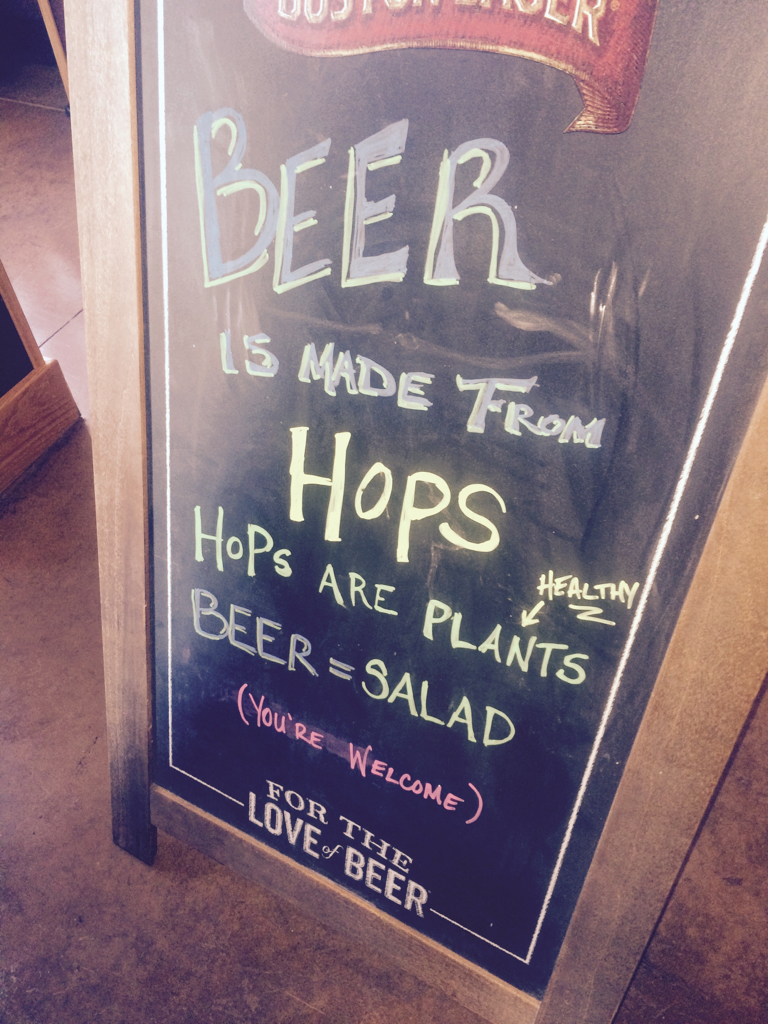 BOSTON LAGER
BEER
IS MADE FROM
HOPS
HOPS ARE PLANTS
HEALTHY
BEER = SALAD
(YOU'RE WELCOME)
FOR THE
LOVE of BEER